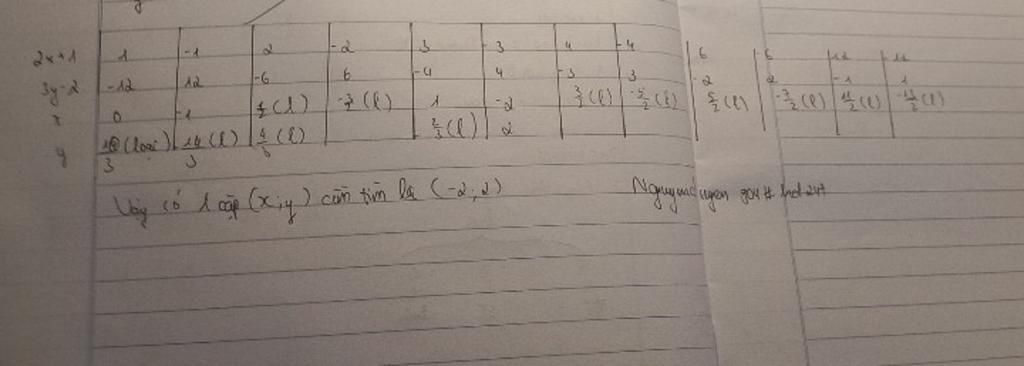 2x+1 1 -1 2 -2 3 -3 4 -4 6 -6 12 -12
3y-2 -12 12 -6 6 -4 4 -3 3 -2 2 -1 1
x 0 -1 1/2 (l) -3/2 (l) 1 -2 3/2 (l) -5/2 (l) 5/2 (l) -7/2 (l) 11/2 (l) -13/2 (l)
y (loại) 14/3 (l) (l) (l) 2
Vậy có 1 cặp (x;y) cần tìm là (-2;2)